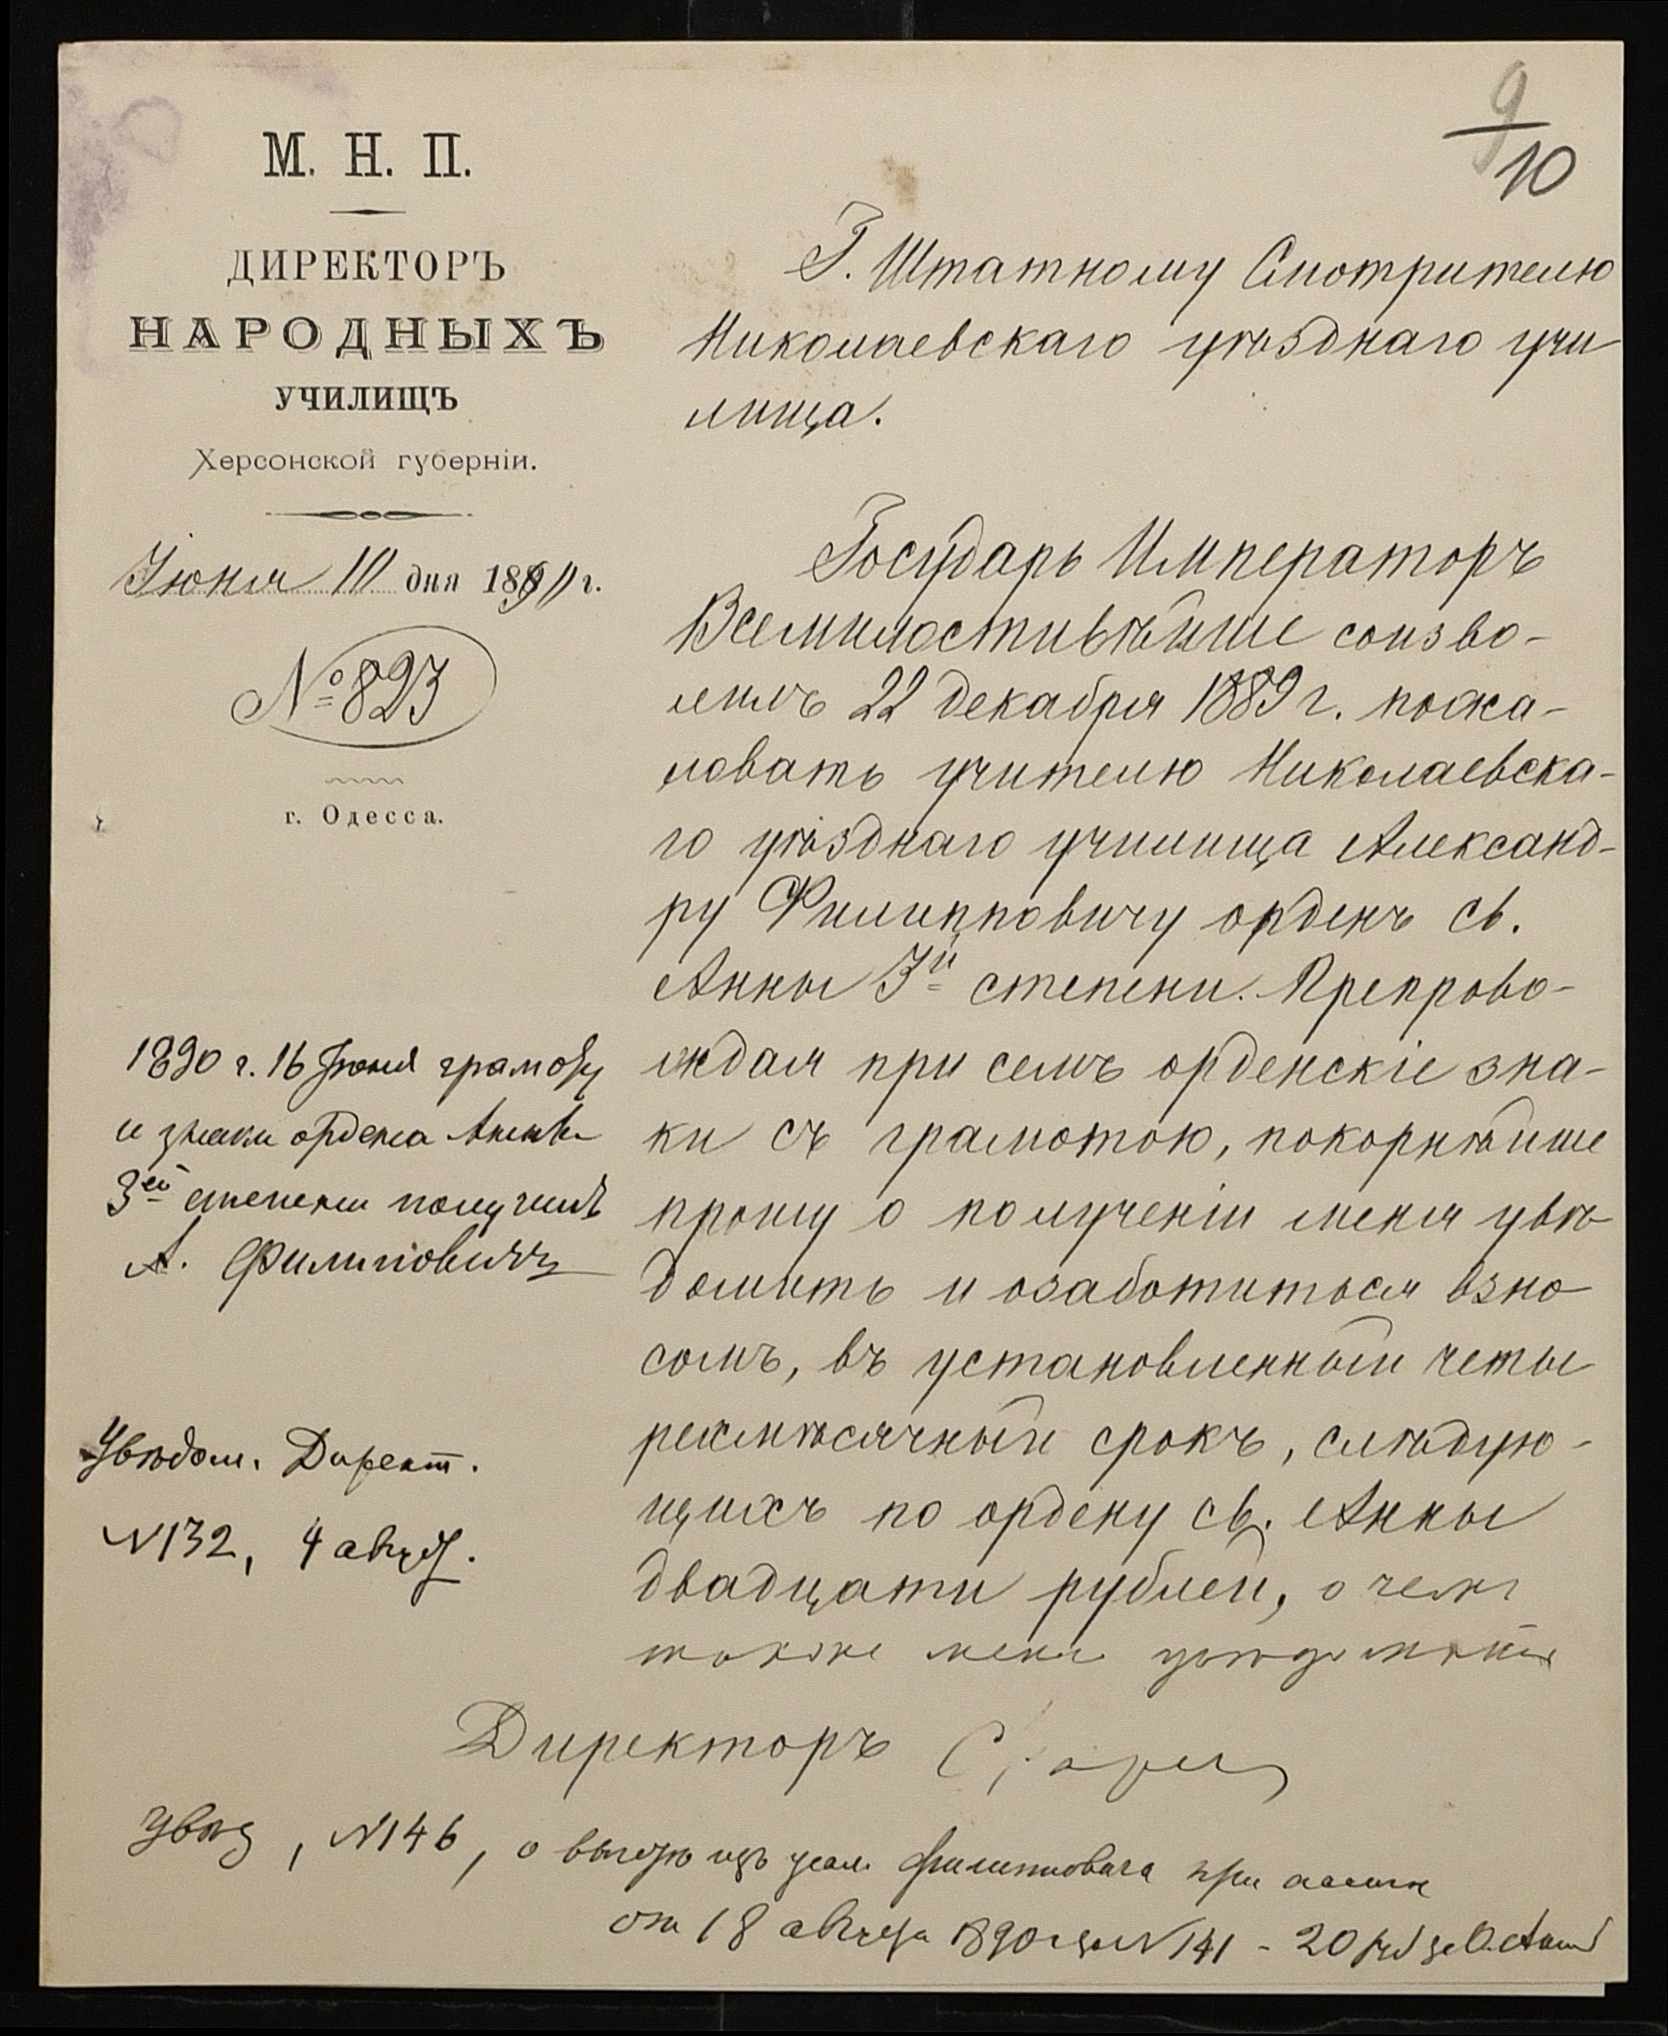 9
10
М. Н. П.
ДИРЕКТОРЪ
НАРОДНЫХЪ
УЧИЛИЩЪ
Херсонской губерніи.
Іюня 10 дня 1890 г.
№ 823
г. Одесса.
Г. Штатному Смотрителю
Николаевскаго уѣзднаго учи
лища.
Государь Императоръ
Всемилостивѣйше соизво-
лилъ 22 декабря 1889 г. пожа-
ловать учителю Николаевска-
го уѣзднаго училища Александ-
ру Филипповичу орденъ св.
Анны 3й степени. Препрово-
ждая при семъ орденскіе зна-
ки съ грамотою, покорнѣйше
прошу о полученіи меня увѣ
домить и озаботиться взно
сомъ, въ установленный четы
рехмѣсячный срокъ, слѣдую-
щихъ по ордену св. Анны
двадцати рублей, о чемъ
также меня увѣдомить
Директоръ
1890 г. 16 Іюня грамоту
и знаки ордена Анны
3ей степени получилъ
А. Филиповичъ
Увѣдом. Директ.
N 132, 4 авг.
Увѣд, N 146, о вычетѣ изъ жал. Филипповича при
отъ 18 августа 1890 г. за N 141 - 20 руб за О. Анны